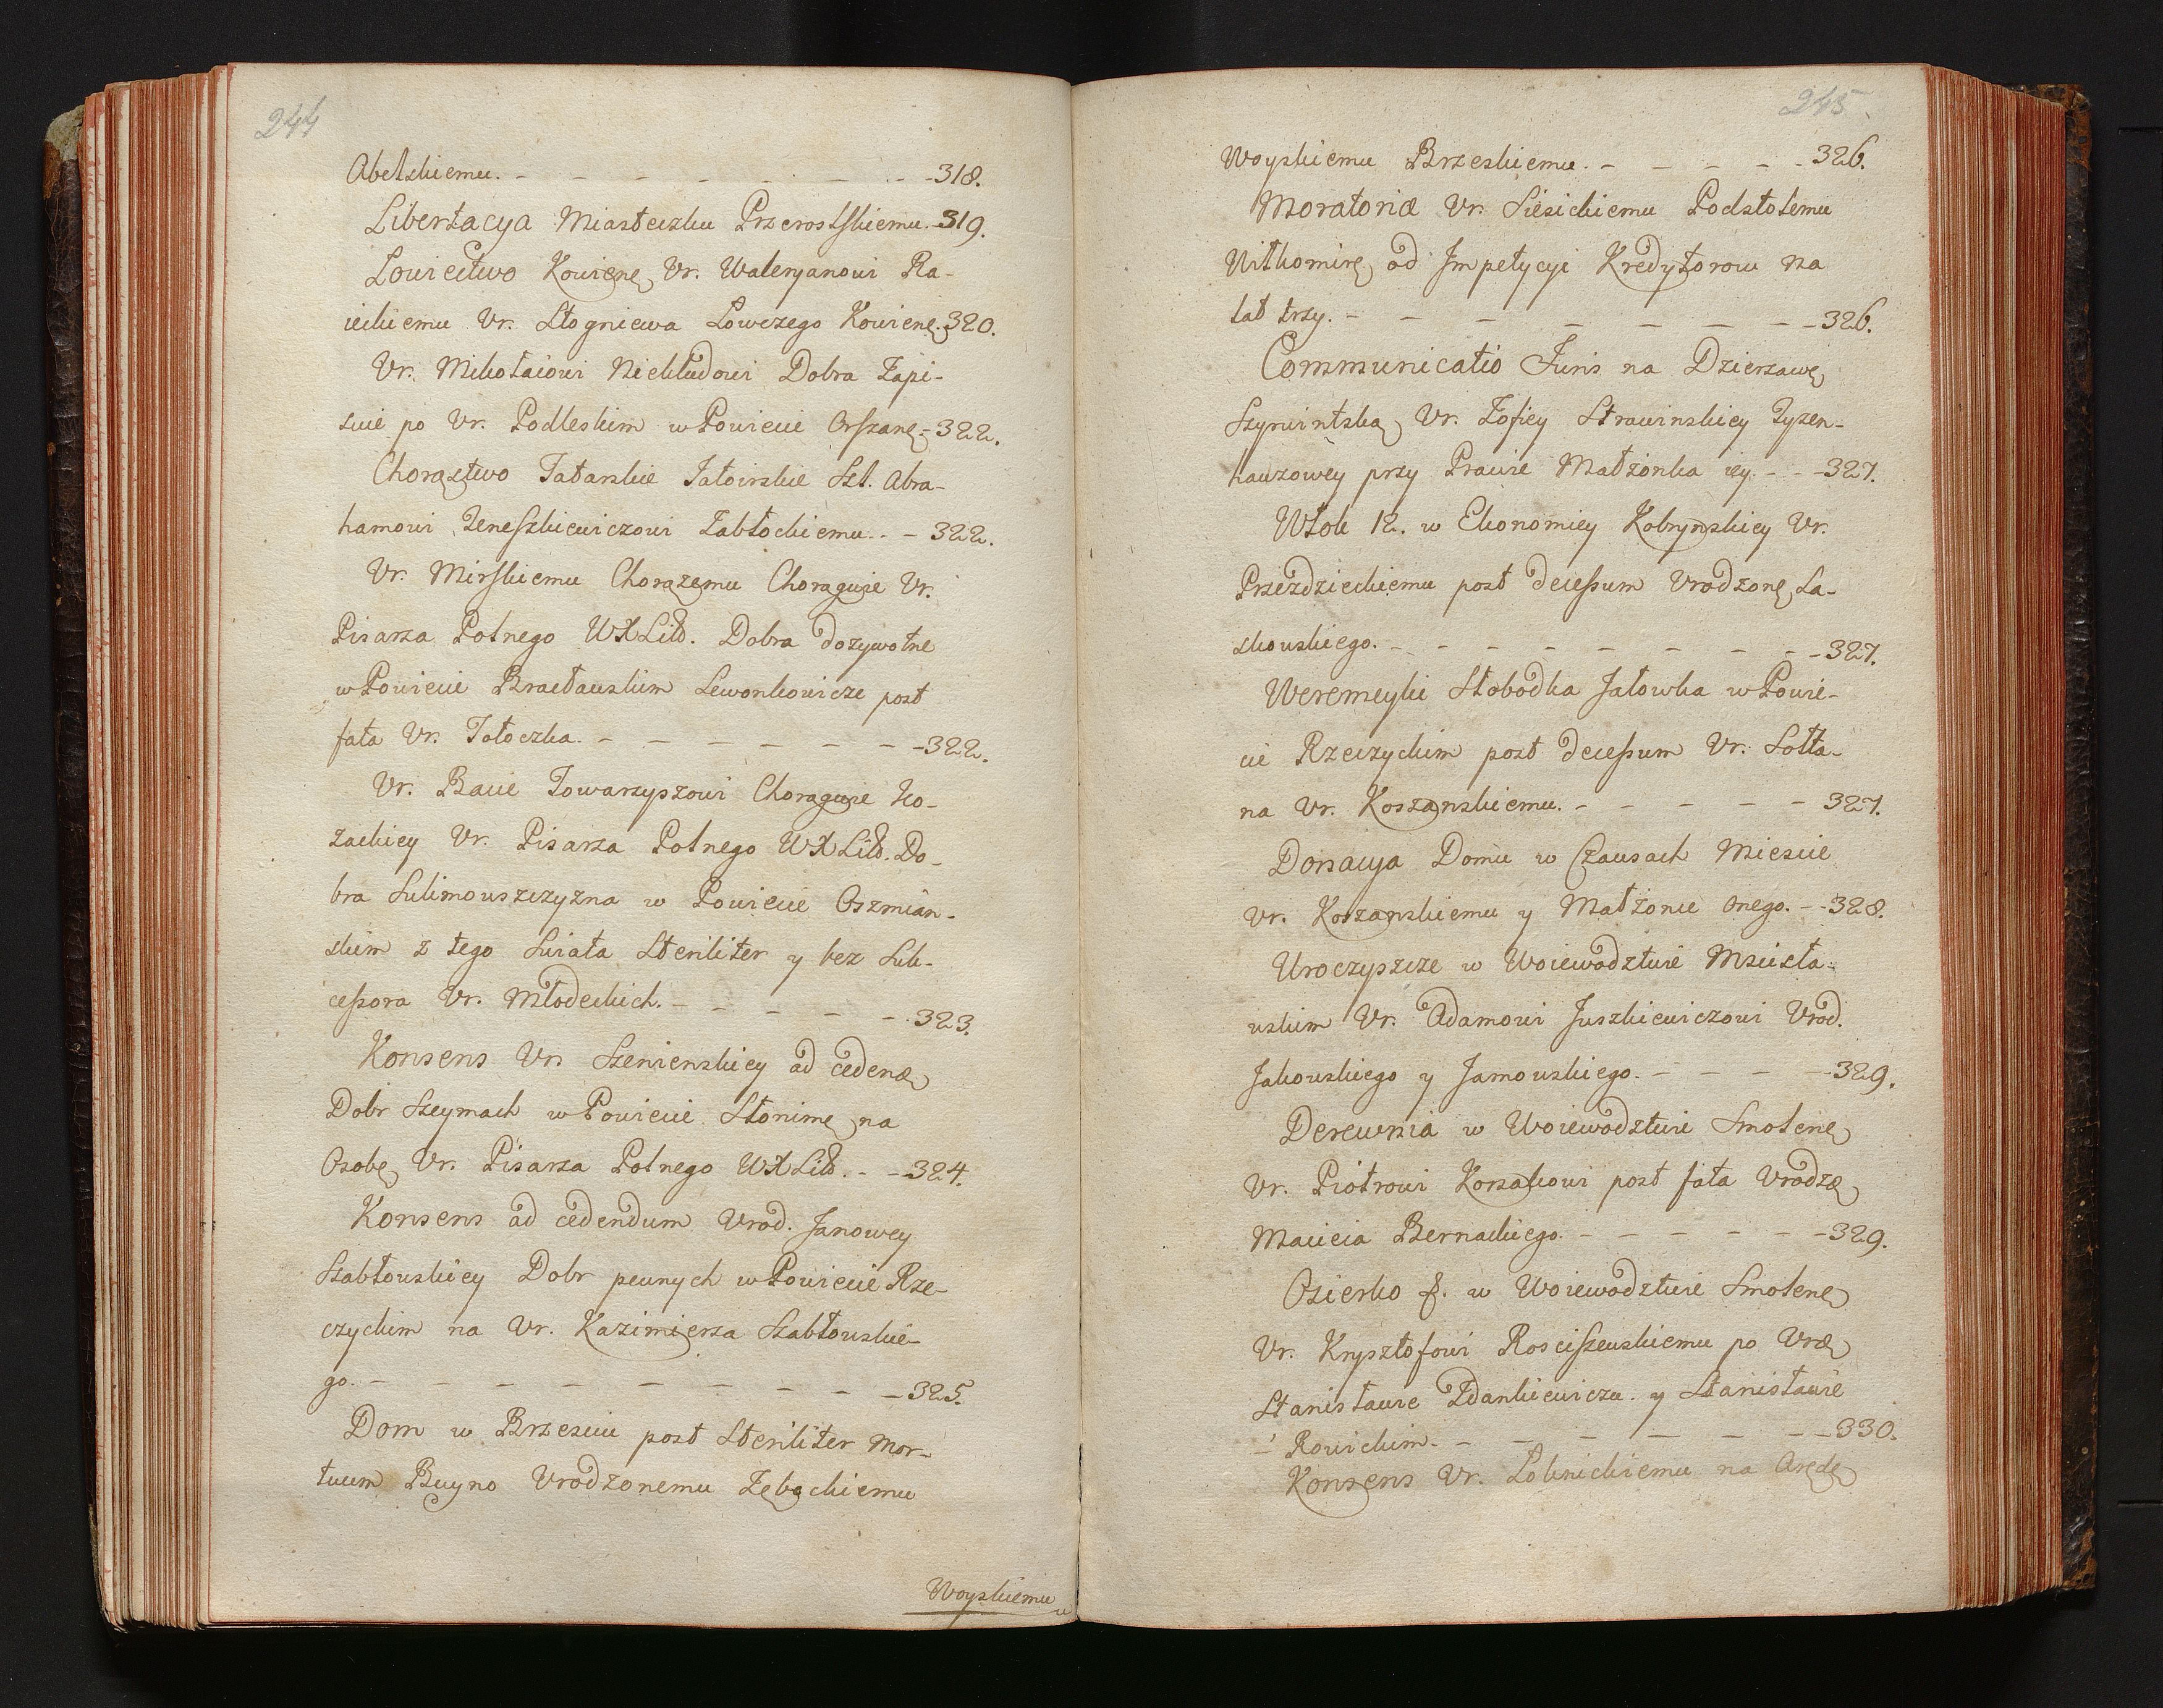 244
Abelskiemu. - - - - - - - 318.
Libertacya Miasteczku Przerostskiemu. - 319.
Łowiectwo Kowienę Ur. Waleryanowi Ra-
ieckiemu Ur. Stogniewa Łowczego Kowienę. 320.
Ur. Mikołaiowi Niekludowi Dobra Zapi-
scie po Ur. Podleskim w Powiecie Orszanę - 322.
Chorąstwo Tatarskie Jałoirskie Szl. Abra-
hamowi Jeneszkiewiczowi Zabłockiemu. - - 322.
Ur. Mirskiemu Chorązemu Chorągwie Ur.
Pisarza Polnego WXLitt. Dobra dozywotne
w Powiecie Bracławskim Lewonkowicze post
fata Ur. Tołoczka. - - - - - - - 322.
Ur. Bacie Towarzyszowi Chorągwie Ko-
zackiey Ur. Pisarza Polnego WXLitt. Do-
bra Sulimowszczyzna w Powiecie Oszmian-
skim z tego Swiata Steriliter y bez Suk-
cessora Ur. Młodeckich. - - - - - 323.
Konsens Urs Szenienskiey ad cedenđ
Dobr Szeymach w Powiecie Słonimę na
Osobę Ur. Pisarza Polnego WXLitt. - - 324.
Konsens ad cedendum Urod. Janowey
Szabłowskiey Dobr pewnych w Powiecie Rze-
czyckim na Ur. Kazimierza Szabłowskie-
go. - - - - - - - - - 325.
Dom w Brzesciu post Steriliter mor-
tuum Buyno Urodzonemu Zębockiemu
Woyskiemu
245
Woyskiemu Brzeskiemu. - - - - - 326.
Moratoriæ Ur. Siesickiemu Podstolemu
Wilkomirę od Impetycyi Kredytorow na
lat trzy. - - - - - - - 326.
Communicatio Juris na Dzierzawę
Szyrwintską Ur. Zofiey Strawinskiey Tyzen-
hauzowey przy Prawie Małżonka iey. - - 327.
Włok 12. w Ekonomiey Kobrynskiey Ur.
Przezdzieckiemu post decessum Urodzonę La-
skowskiego. - - - - - - - - 327.
Weremeyki Słobodka Jałowka w Powie-
cie Rzeczyckim post decessum Ur. Sołta-
na Ur. Koszanskiemu. - - - - - 327.
Donacya Domu w Czausach Miescie
Ur. Koszanskiemu y Małżonce onego. - - 328.
Uroczyszcze w Woiewodztwie Mscisła-
wskim Ur. Adamowi Juszkiewiczowi Urod.
Jakowskiego y Jamowskiego. - - - - 329.
Derewnia w Woiewodztwie Smolenę
Ur. Piotrowi Korsakowi post fata Urodzę
Macieia Bernackiego. - - - - - - 329.
Osierko f. w Woiewodztwie Smolenę
Ur. Krysztofowi Rosciszewskiemu po Urđ
Stanisławie Zdankiewiczu. y Stanisławie
Rowickim. - - - - - - - 330.
Konsens Ur. Łoknickiemu na Arędę